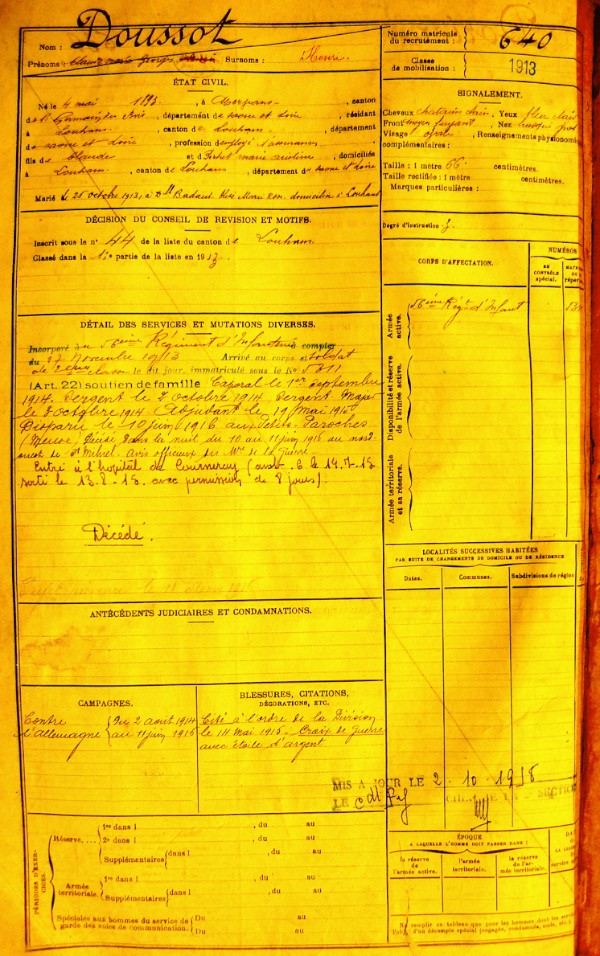 Nom : Doussot
Prénoms : georges Surnoms : Henri
Numéro matricule du recrutement : 640
Classe de mobilisation : 1913
ÉTAT CIVIL.
Né le 4 mai 1893, à , canton
de St germain du bois, département de saone et loire, résidant
à Louhans, canton de Louhans, département
de saone et loire, profession de
fils de Claude et de marie , domiciliés
à Louhans, canton de Louhans, département de saone et loire
Marié le 25 octobre 1913, à Melle domiciliée à Louhans
SIGNALEMENT.
Cheveux chatain clair, Yeux bleu clair
Front moyen fuyant, Nez moyen gros
Visage ovale, Renseignements physionomiques
complémentaires :
Taille : 1 mètre 66 centimètres.
Taille rectifiée : 1 mètre centimètres.
Marques particulières :
Degré d'instruction 3
DÉCISION DU CONSEIL DE REVISION ET MOTIFS.
Inscrit sous le n° 44 de la liste du canton de Louhans
Classé dans la 1re partie de la liste en 1913
DÉTAIL DES SERVICES ET MUTATIONS DIVERSES.
Incorporé au 56ème Régiment d'Infanterie à compter
du 27 Novembre 1913 Arrivé au corps et soldat
de 2ème classe le dit jour, immatriculé sous le No 5311
(Art. 22) soutien de famille Caporal le 1er septembre
1914. Sergent le 2 octobre 1914 Sergent Major
le 3 octobre 1914 Adjudant le 19 mai 1915
Disparu le 10 juin 1916 aux Petits Paroches
(Meuse) Décédé dans la nuit du 10 au 11 juin 1916 au nord
ouest de St Mihiel. Avis officieux du Mre de la Guerre
Entré à l'hopital du Courneau le 14-7-15
sorti le 13-8-15 avec permission de 8 jours).
Décédé.
CORPS D'AFFECTATION.
NUMÉROS
AU CONTRÔLE spécial.
Armée active.
56ème Régt d'Infant
Disponibilité et réserve de l'armée active.
Armée territoriale et sa réserve.
LOCALITÉS SUCCESSIVES HABITÉES
PAR SUITE DE CHANGEMENTS DE DOMICILE OU DE RÉSIDENCE
Dates. Communes. Subdivisions de région
ANTÉCÉDENTS JUDICIAIRES ET CONDAMNATIONS.
CAMPAGNES.
Contre l'Allemagne
Du 2 août 1914
au 11 juin 1916
BLESSURES, CITATIONS, DÉCORATIONS, ETC.
Cité à l'ordre de la Division
le 14 Mai 1916 - Croix de Guerre
avec étoile d'argent
MIS A JOUR LE 2-10-1918
PÉRIODES D'EXERCICES.
Réserve....
1re dans l , du au
2e dans l , du au
Supplémentaires dans l , du au
Armée territoriale.
1re dans l , du au
Supplémentaires dans l , du au
Spéciales aux hommes du service de garde des voies de communication.
Du au
Du au
ÉPOQUE
A LAQUELLE L'HOMME DOIT PASSER DANS :
la réserve de l'armée active.
l'armée territoriale.
la réserve de l'armée territoriale.